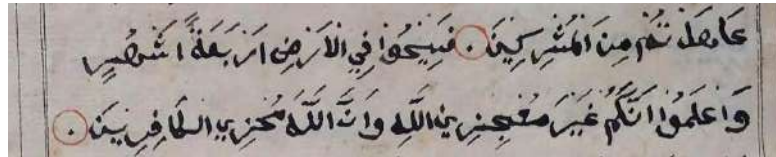 عَاهَدْتُمْ مِنَ الْمُشْرِكِينَ . فَسِيحُوا فِي الْاَرْضِ اَرْبَعَةَ اَشْهُرٍ
وَاعْلَمُوا اَنَّكُمْ غَيْرُ مُعْجِزِي اللَّهِ وَاَنَّ اللَّهَ مُخْزِي الْكَافِرِينَ .